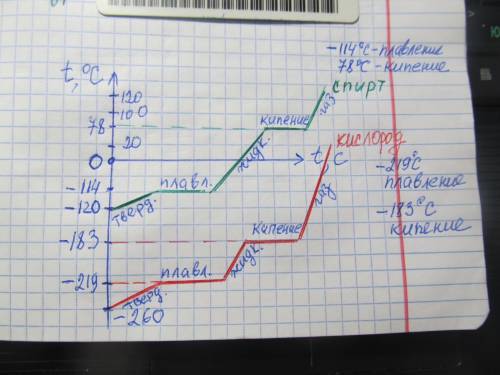 -114°C-плавление
78°C-кипение
t,°C
спирт
120
100
78
20
0
-114
-120
-183
-219
-260
тверд.
плавл.
жидк.
кипение
газ
t, c
кислород
-219°C
плавление
-183°C
кипение
тверд.
плавл.
жидк.
кипение
газ